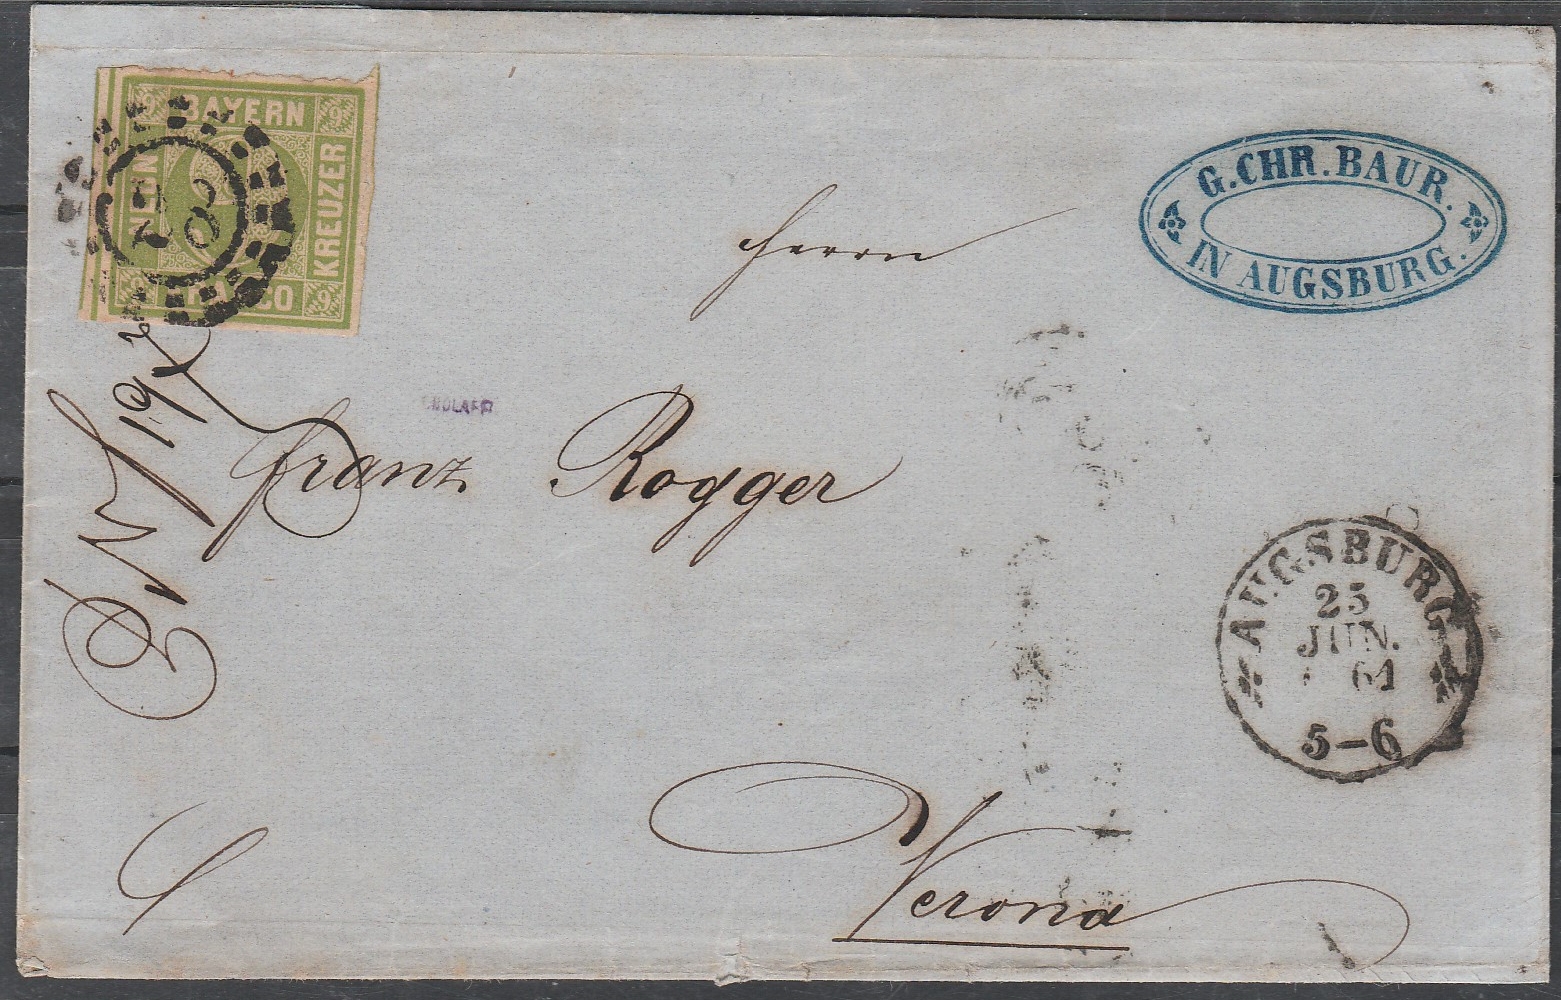 BAYERN
NEUN
KREUZER
9 9 9 9
G. CHR. BAUR.
IN AUGSBURG.
Herrn
Franz Rogger
AUGSBURG
25
JUN.
61
5-6
Verona